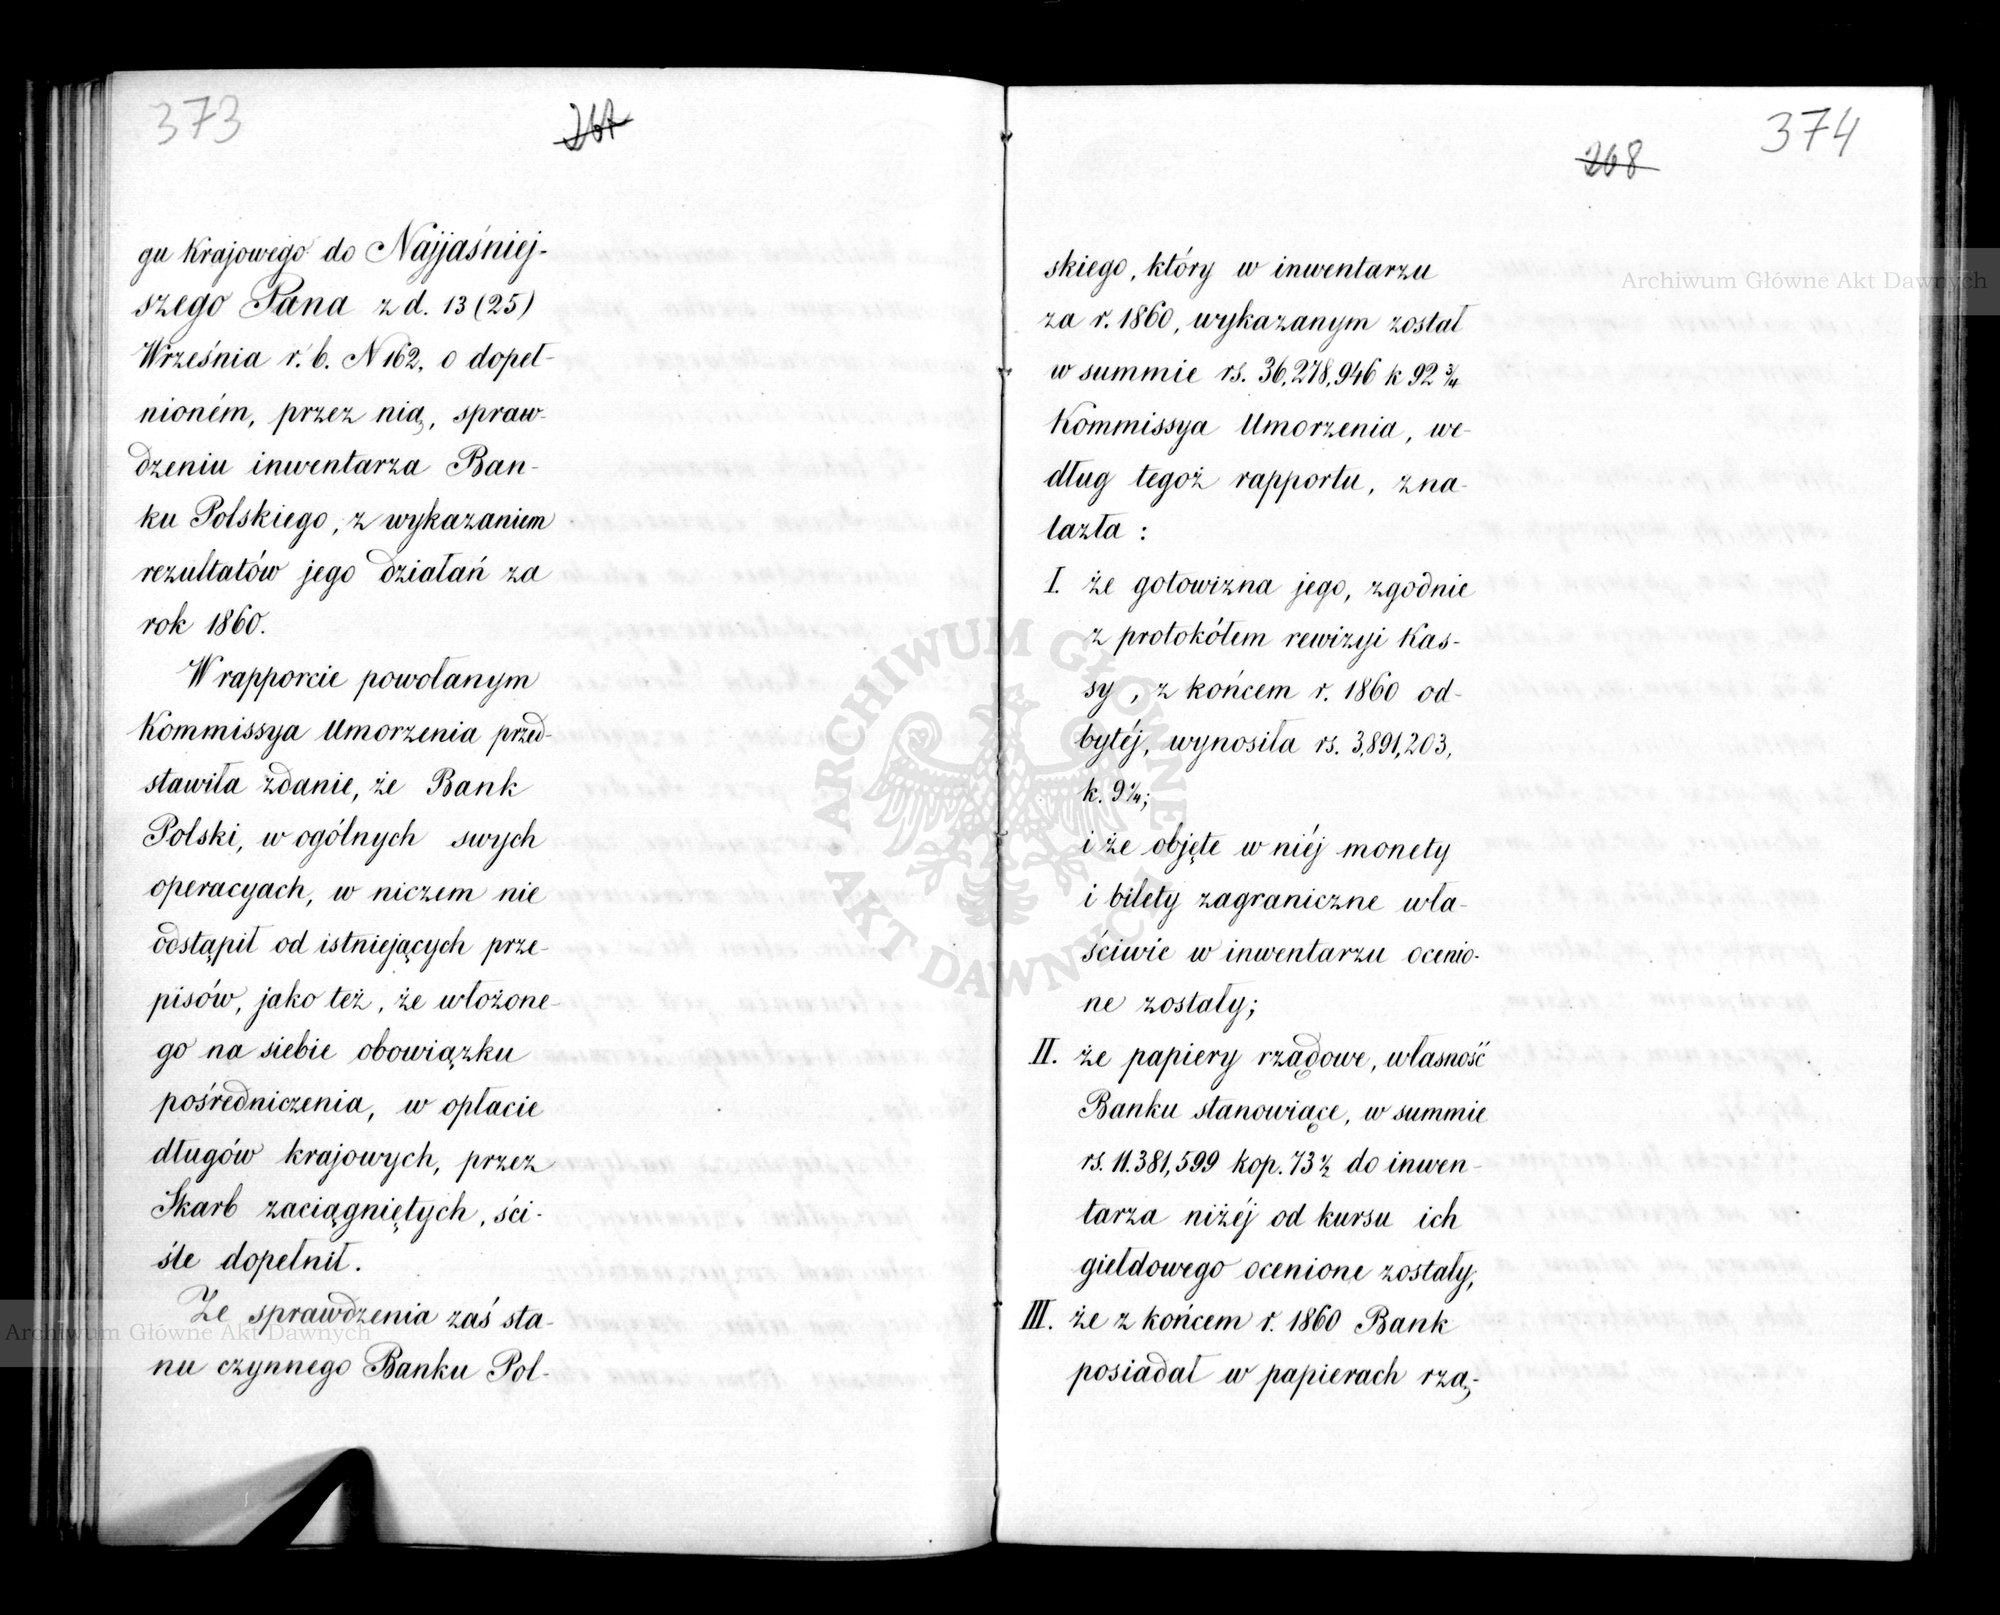 373
267
gu Krajowego do Najjaśniej-
szego Pana z d. 13 (25)
Września r. b. N 162, o dopeł-
nioném, przez nią, spraw-
dzeniu inwentarza Ban-
ku Polskiego, z wykazaniem
rezultatów jego działań za
rok 1860.
W rapporcie powołanym
Kommissya Umorzenia przed-
stawiła zdanie, że Bank
Polski, w ogólnych swych
operacyach, w niczem nie
odstąpił od istniejących prze-
pisów, jako też, że włożone-
go na siebie obowiązku
pośredniczenia, w opłacie
długów krajowych, przez
Skarb zaciągniętych, ści-
śle dopełnił.
Ze sprawdzenia zaś sta-
nu czynnego Banku Pol-
374
268
skiego, który w inwentarzu
za r. 1860, wykazanym został
w summie rs. 36,278,946 k 92 3/4
Kommissya Umorzenia, we-
dług tegoż rapportu, zna-
lazła :
I. że gotowizna jego, zgodnie
z protokółem rewizyi Kas-
sy, z końcem r. 1860 od-
bytéj, wynosiła rs. 3,891,203,
k. 9 1/4;
i że objęte w niéj monety
i bilety zagraniczne wła-
ściwie w inwentarzu ocenio-
ne zostały;
II. że papiery rządowe, własność
Banku stanowiące, w summie
rs. 11.381,599 kop. 73 1/2 do inwen-
tarza niżéj od kursu ich
giełdowego ocenione zostały;
III. że z końcem r. 1860 Bank
posiadał w papierach rzą-
Archiwum Główne Akt Dawnych
Archiwum Główne Akt Dawnych
ARCHIWUM GŁÓWNE AKT DAWNYCH